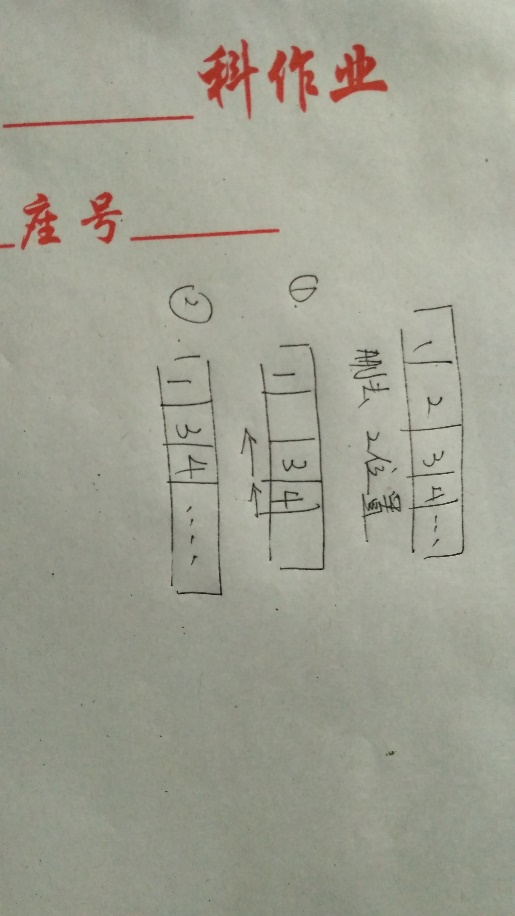 科作业
座号
1 2 3 4 ...
删去 2位置
①
1 3 4
②
1 3 4 ....